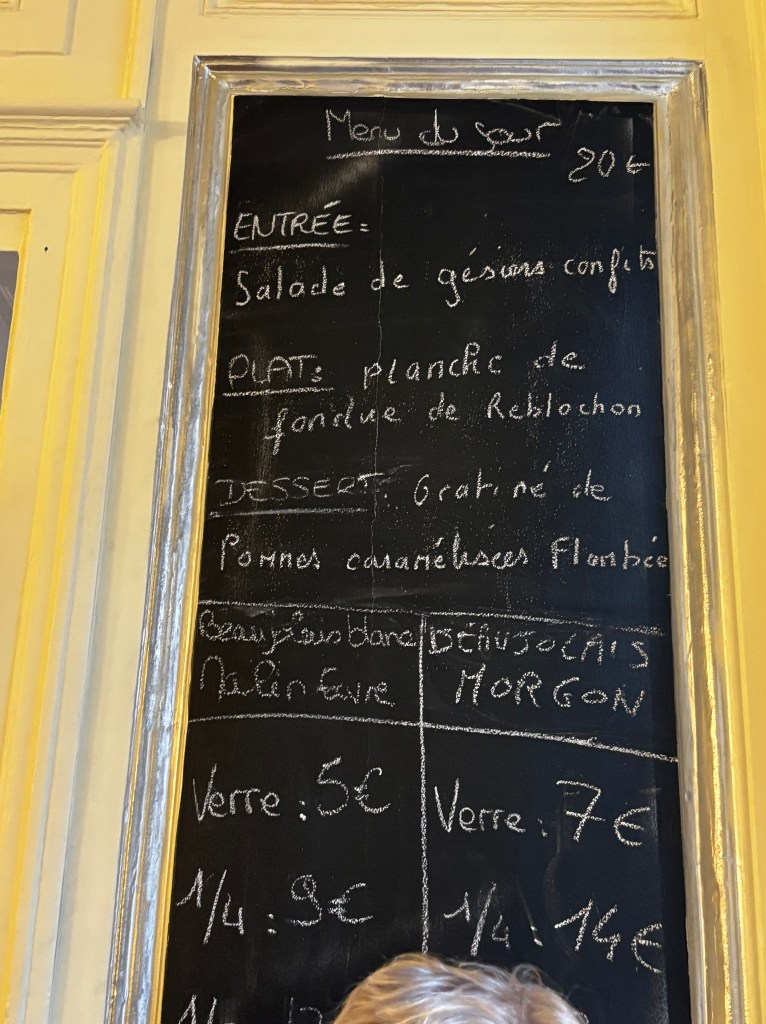 Menu du jour
20 €
ENTRÉE:
Salade de gésiers confits
PLAT: planche de
fondue de Reblochon
DESSERT: Gratiné de
Pommes caramélisées Flambée
Beaujolais blanc
BEAUJOLAIS
MORGON
Verre: 5€
Verre: 7€
1/4: 9€
1/4: 14€